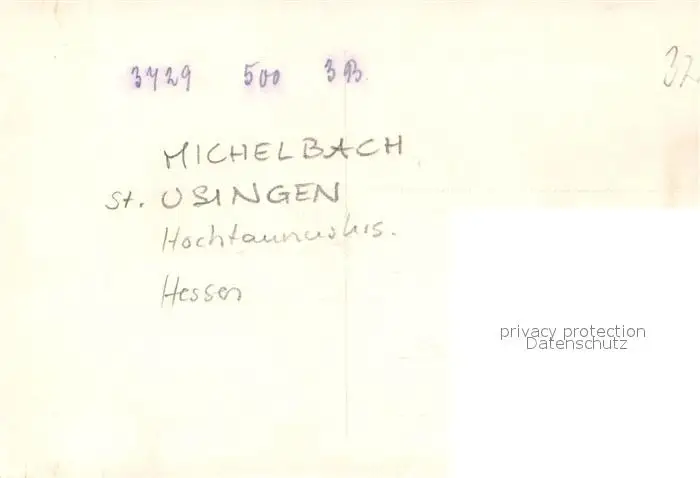 3729 500 3B.
32
MICHELBACH
St. USINGEN
Hochtaunuskrs.
Hessen
privacy protection
Datenschutz